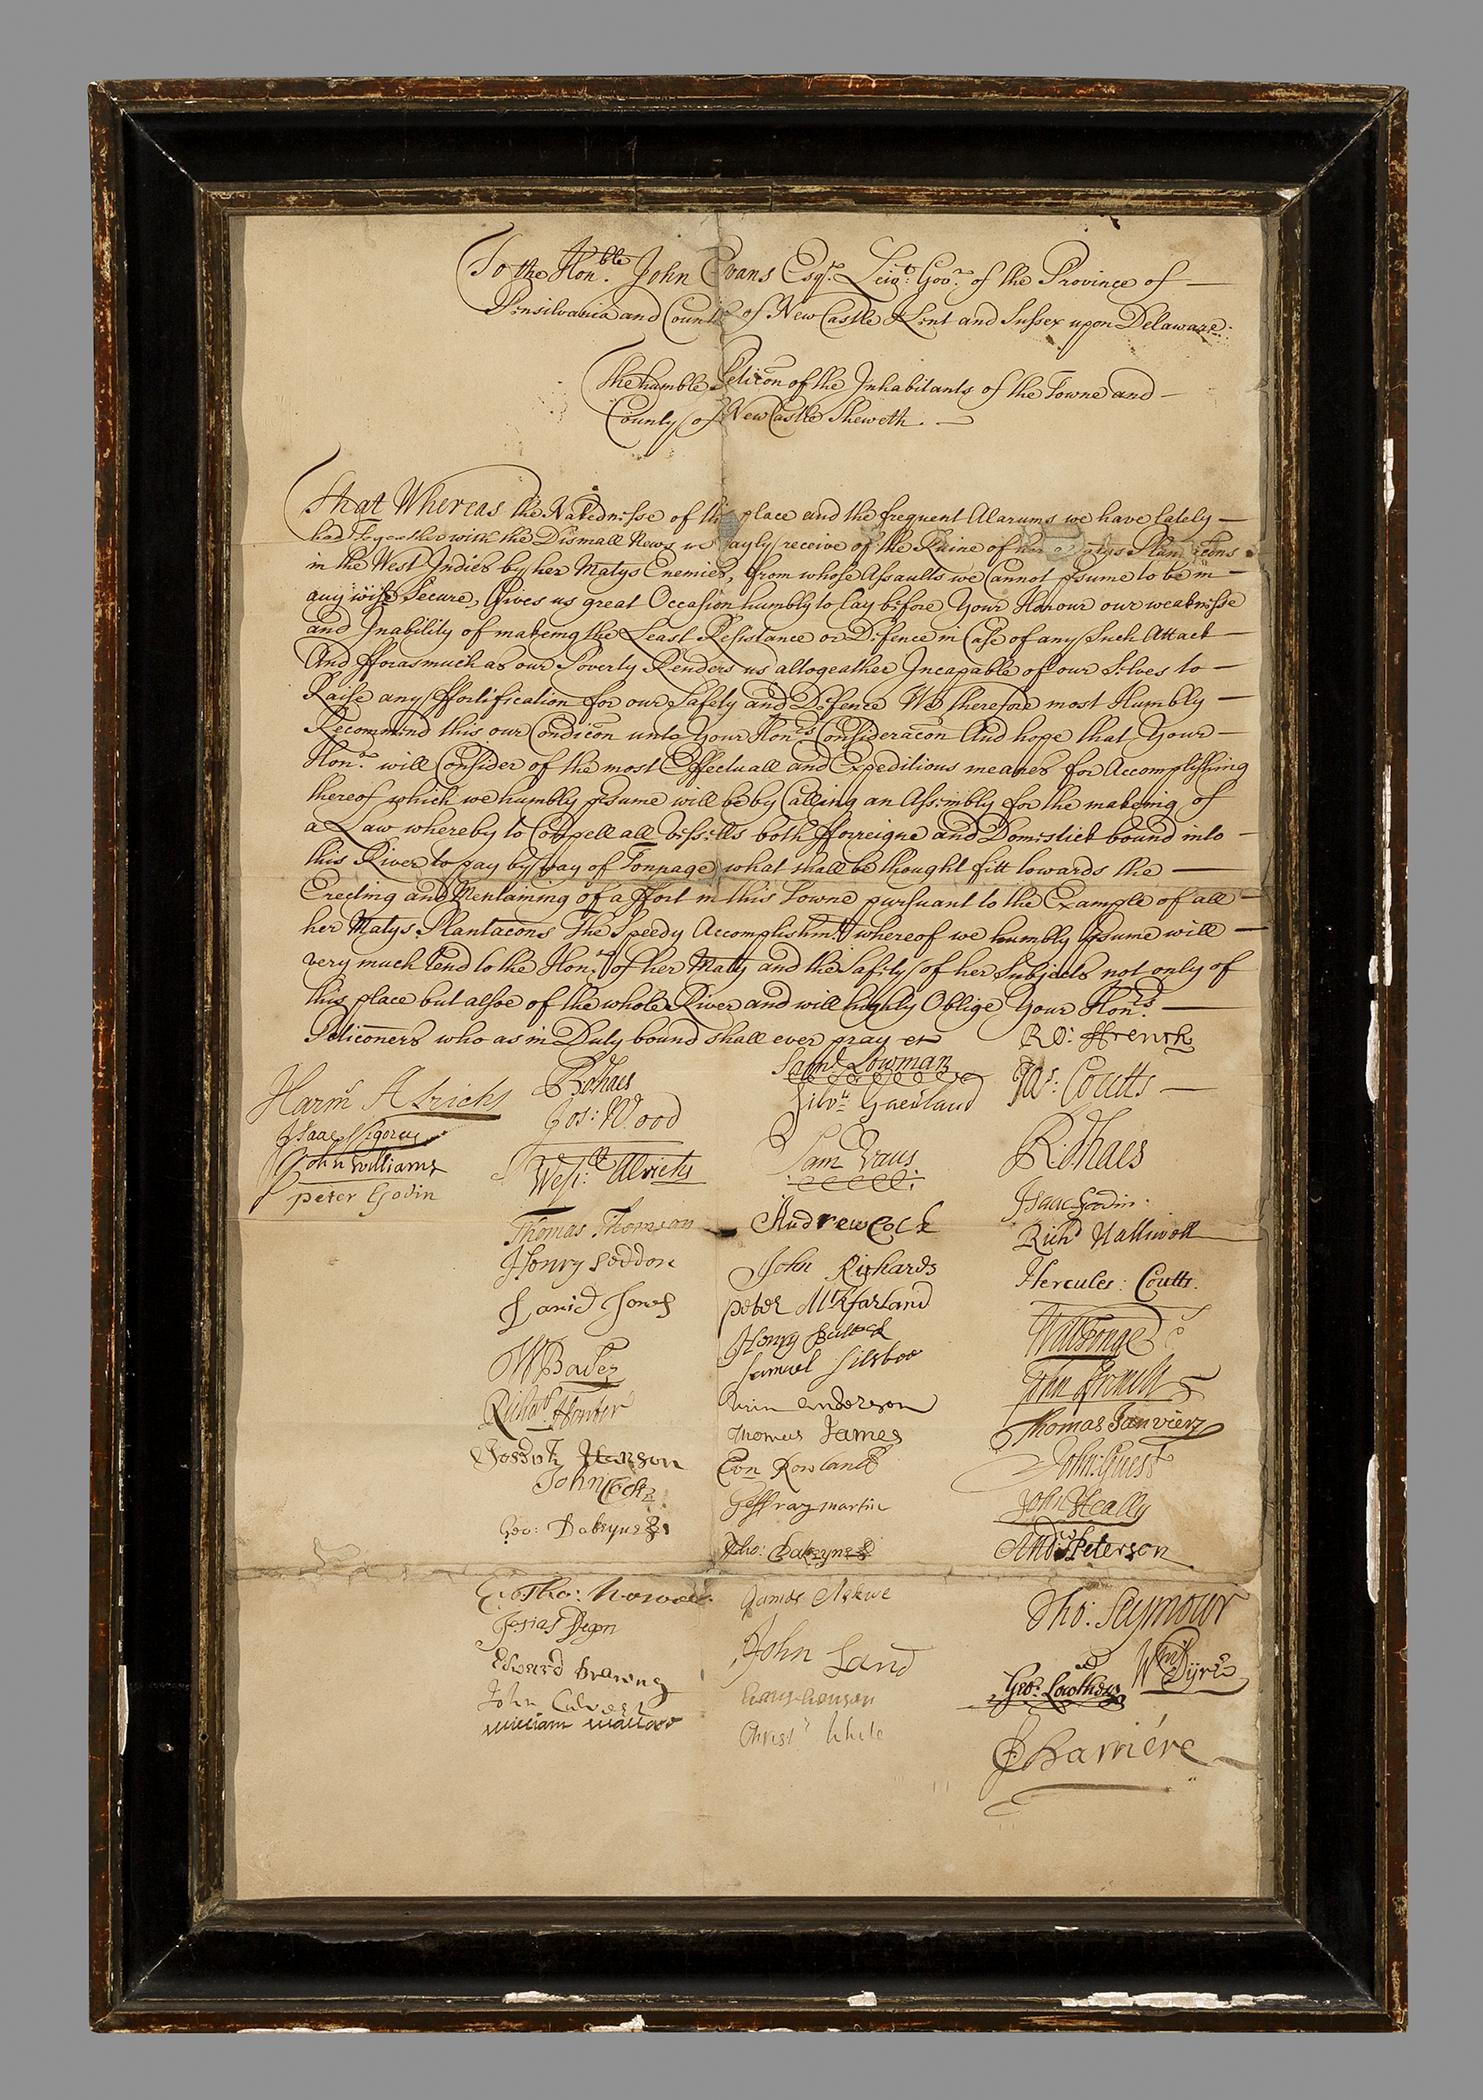 To the Hon.ble John Evans Esqr. Leiut. Govr. of the Province of
Pensilvania and Counties of New Castle Kent and Sussex upon Delaware.
The humble Peticon of the Inhabitants of the Towne and
County of New Castle Sheweth.
That Whereas the Nakednesse of this place and the frequent Alarums we have lately
had Togeather with the Dismall News we dayly receive of the Ruine of her Matys Plantacons
in the West Indies by her Matys Enemies, from whose Assaults we Cannot psume to be in
any wise Secure, Gives us great Occasion humbly to lay before Your Honour our weaknesse
and Inability of makeing the Least Resistance or Defence in Case of any Such Attack
And fforasmuch as our Poverty Renders us altogeather Incapable of our Selves to
Raise any ffortification for our Safety and Defence We therefore most Humbly
Recommend this our Condicon unto Your Honrs Consideracon And hope that Your
Honr. will Consider of the most Effectuall and Expeditious meanes for Accomplishing
thereof which we humbly psume will be by Calling an Assembly for the makeing of
a Law whereby to Compell all Vessells both fforreigne and Domestick bound into
this River to pay by way of Tonnage what shall be thought fitt towards the
Erecting and Mentaining of a ffort in this Towne pursuant to the Example of all
her Matys Plantacons The Speedy Accomplishmt whereof we humbly psume will
very much tend to the Honr. of her Maty and the Safety of her Subjects not only of
this place but alsoe of the whole River and will highly Oblige Your Honrs.
Peticoners who as in Duty bound shall ever pray et
Ro: ffrench
Harmn Alrichs
Isaac Vigorue
John Williams
peter Godin
Jos: Wood
Wessll Alrichs
Thomas Thomson
Henry Seddon
Daniel Jones
Richd. Hunter
Joseph Hanson
John Cock
Geo: Dakeyne
Josias
Edward
John Calvert
William Wallace
Saml. Lowman
Silvr. Garland
Sam Vaus
Andrew Cock
John Richards
peter McKfarland
Henry Bulock
Samuel Silsbee
Urin Anderson
Thomas James
Evn Rowland
Jeffray martin
Tho: Dakeyne
James Askwe
John Land
hans hanson
Christr White
Jas: Coutts
R: Haes
Isaac Godin
Richd Halliwell
Hercules: Coutts.
John ffrench
Thomas Janvierz
John: Guest
John Heally
Andw. Peterson
Tho: Seymour
Geo: Lowther
Wm Dyre
Barriére